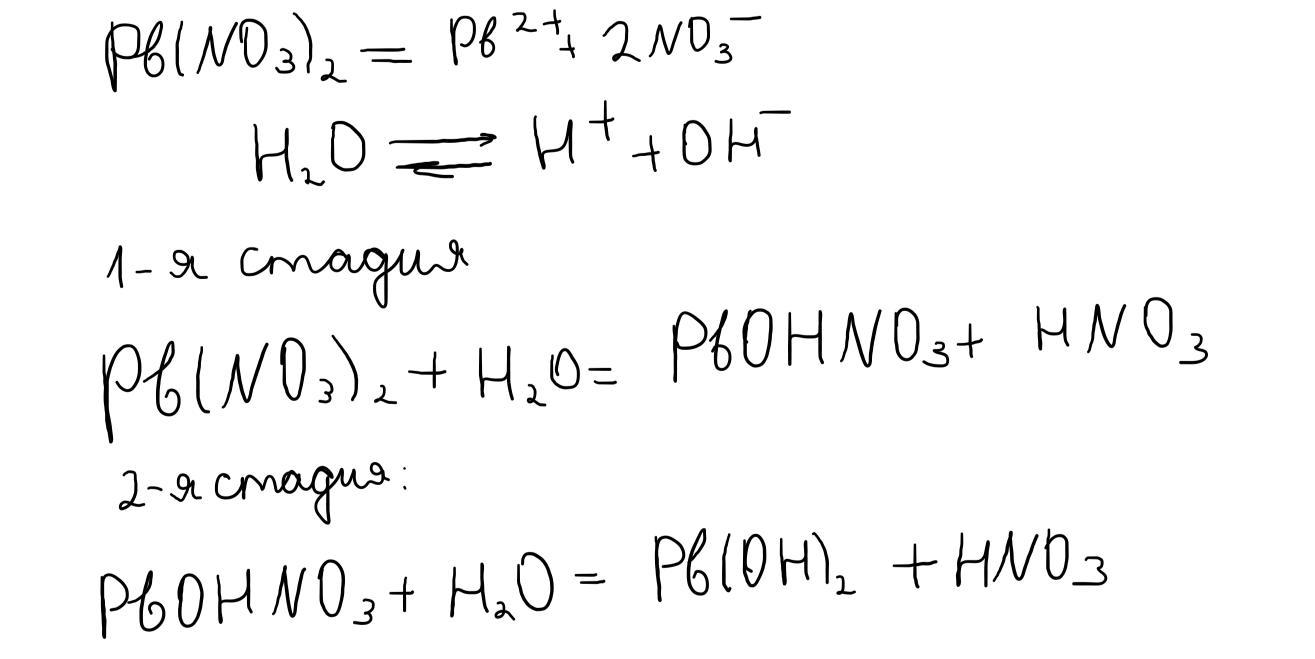 Pb(NO₃)₂ = Pb²⁺ + 2NO₃⁻
H₂O ⇌ H⁺ + OH⁻
1-я стадия
Pb(NO₃)₂ + H₂O = PbOHNO₃ + HNO₃
2-я стадия:
PbOHNO₃ + H₂O = Pb(OH)₂ + HNO₃